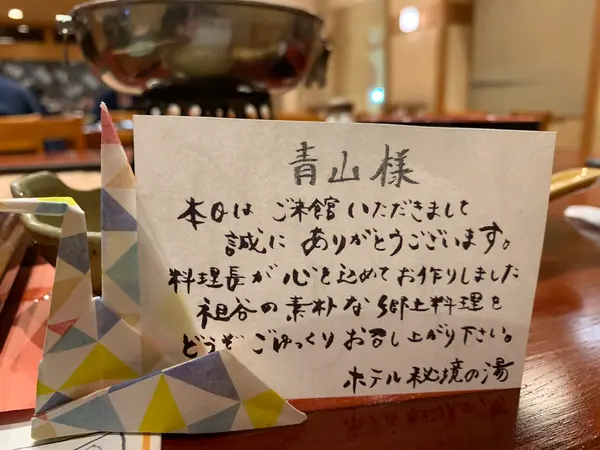 青山様
本日は ご来館いただきまして
誠に ありがとうございます。
料理長が 心を込めてお作りしました
祖谷の素朴な郷土料理を
どうぞ ごゆっくり お召し上がり下さい。
ホテル秘境の湯